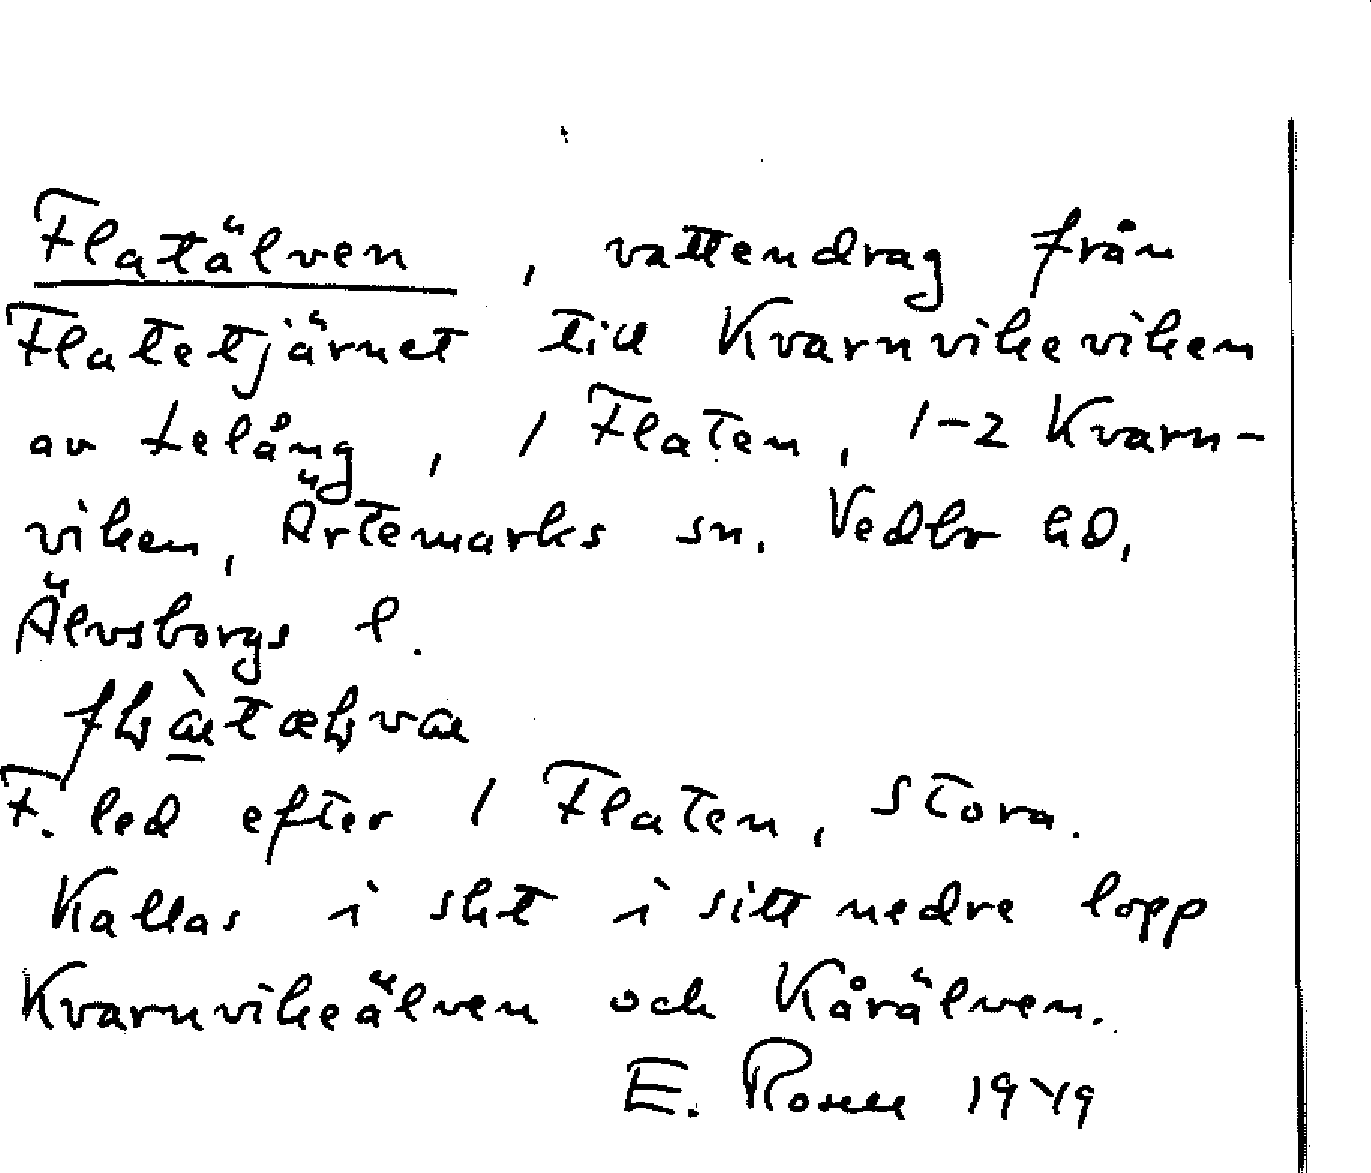 Flatälven, vattendrag från
Flatetjärnet till Kvarnvikeviken
av Lelång, 1 Flaten, 1-2 Kvarn-
viken, Ärtemarks sn. Vedbo hd,
Älvsborgs l.
F. led efter 1 Flaten, Stora.
Kallas i sht i sitt nedre lopp
Kvarnvikeälven och Kårälven.
E. 1949